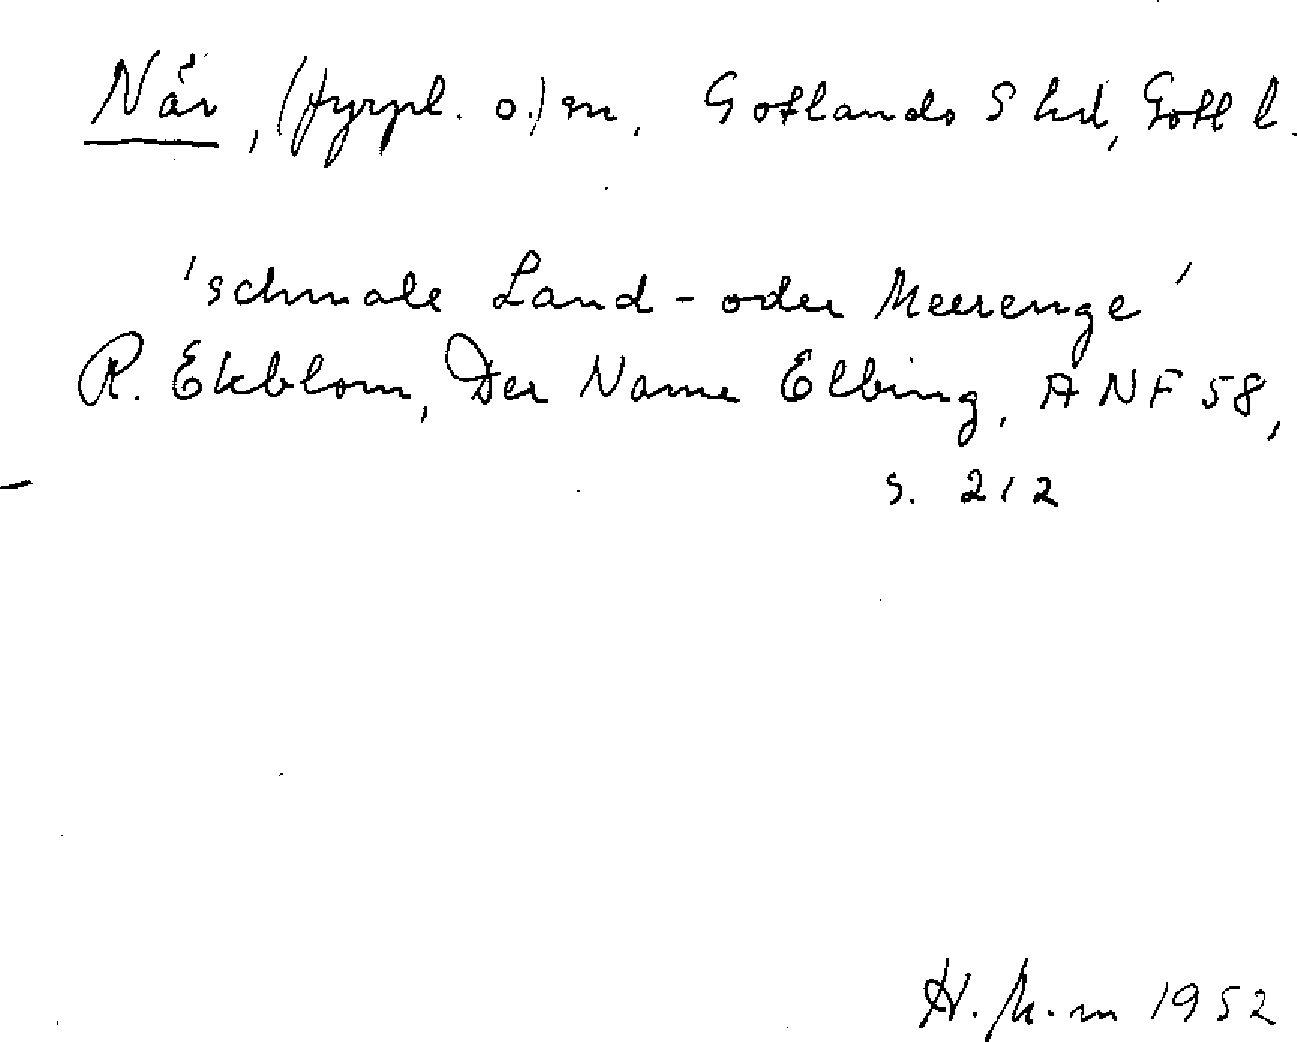 När, (fyrpl. o.) sn, Gotlands S hd, Gotl l.
'schmale Land- oder Meerenge'
R. Ekblom, Der Name Elbing, ANF 58,
s. 212
1952